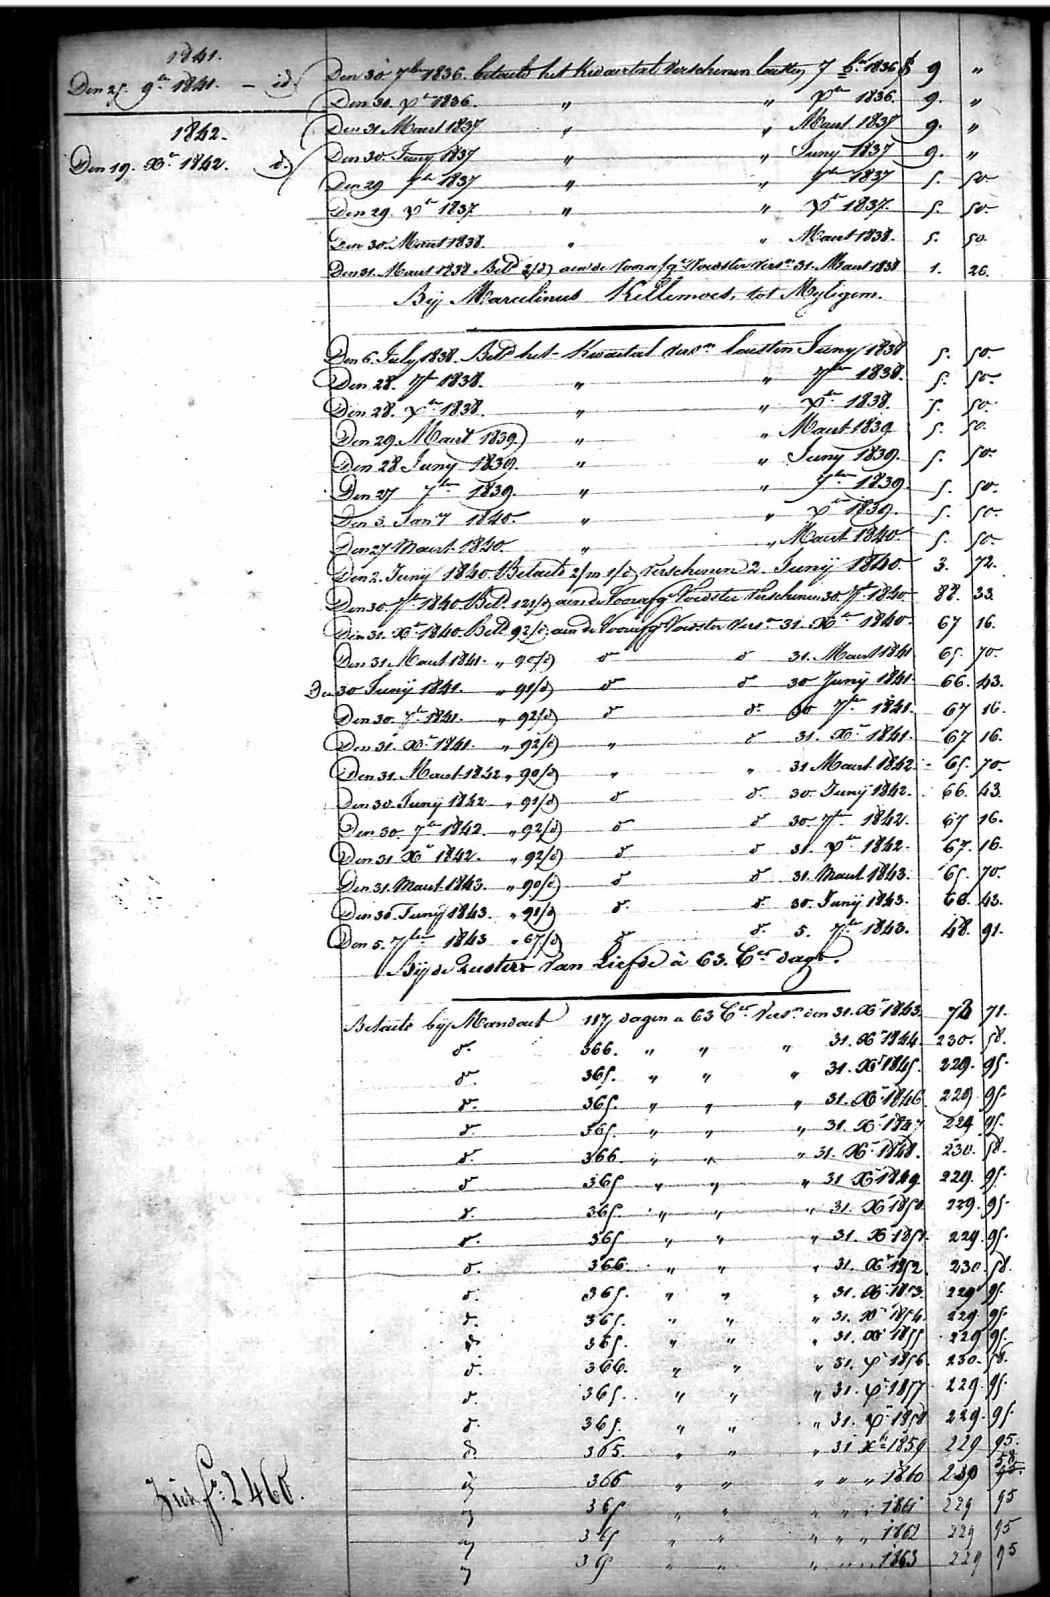 1841.
Den 25. 9br 1841. — id
1842.
Den 19. Xbr 1842. id.
Den 30 7ber 1836. betaeld het Kwartael verschenen laetsten 7ber 1836 f 9 "
Den 30. Xbr 1836. " " Xbr 1836. 9. "
Den 31 Maert 1837 " " Maert 1837 9. "
Den 30 Juny 1837 " " Juny 1837 9. "
Den 29 7br 1837 " " 7br 1837 5. 50.
Den 29. Xbr 1837. " " Xbr 1837. 5. 50.
Den 30. Maert 1838. " " Maert 1838. 5. 50.
Den 31. Maert 1838 Beld aen de voorafge Voedster vers. 31. Maert 1838 1. 26.
Bij Marcelinus Killemoes, tot Myligem.
Den 6. July 1838. Beld het Kwartael vers.en laetsten Juny 1838 5. 50.
Den 28. 7br 1838. " " 7br 1838. 5. 50.
Den 28. Xbr 1838. " " Xbr 1838. 5. 50.
Den 29. Maert 1839. " " Maert 1839 5. 50.
Den 28 Juny 1839. " " Juny 1839. 5. 50.
Den 27 7ber 1839. " " 7ber 1839. 5. 50.
Den 3. Jany 1840. " " Xbr 1839. 5. 50.
Den 27 Maert 1840. " " Maert 1840. 5. 50.
Den 2. Junij 1840 Betaeld 2/m 1/d verschenen 2. Junij 1840. 3. 72.
Den 30 7br 1840 Beld. 121/d aen de Voorafge Voedster Verschenen 30. 7br 1840 88. 33.
Den 31. Xbr 1840. Beld. 92/d. aen de Voorafge Voedster Vers. 31. Xbr 1840. 67 16.
Den 31. Maert 1841. " 90/d) d d 31. Maert 1841 65. 70.
Den 30 Junij 1841. " 91/d) d d 30 Junij 1841. 66. 43.
Den 30. 7br 1841. " 92/d) d d. 30 7br 1841. 67 16.
Den 31. Xbr 1841. " 92/d) " d 31. Xbr 1841. 67 16.
Den 31. Maert 1842 " 90/d) " " 31 Maert 1842 65. 70.
Den 30. Junij 1842 " 91/d) d d. 30. Junij 1842. 66. 43.
Den 30. 7br 1842. " 92/d) d d 30. 7br 1842. 67 16.
Den 31 Xbr 1842. " 92/d) d d 31. Xbr 1842. 67. 16.
Den 31. Maert 1843. " 90/d) d d 31. Maert 1843. 65. 70.
Den 30. Junij 1843. " 91/d d. d. 30. Junij 1843. 66. 43.
Den 5. 7ber 1843 " 67/d) d d. 5. 7br 1843. 48. 91.
Bij de Zusters van Liefde à 63. Ces daegs.
Betaeld bij Mandaet 117 dagen a 63 Ces Vers.en den 31. Xbr 1843. 73 71.
d. 366. " " " 31. Xbr 1844. 230. 58.
d. 365. " " " 31. Xbr 1845. 229. 95.
d. 365. " " " 31. Xbr 1846. 229 95.
d. 365. " " " 31. Xbr 1847 229 95.
d. 366. " " " 31. Xbr 1848. 230. 58.
d 365 " " " 31 Xbr 1849. 229. 95.
d. 365. " " " 31. Xbr 1850. 229. 95.
d. 365 " " " 31. Xbr 1851. 229. 95.
d. 366. " " " 31. Xbr 1852. 230. 58.
d. 365. " " " 31. Xbr 1853. 229 95.
d. 365. " " " 31. Xbr 1854. 229. 95.
d 365. " " " 31. Xbr 1855 229 95.
d. 366. " " " 31. Xr 1856. 230. 58.
d. 365. " " " 31. Xr 1857 229. 95.
d. 365. " " " 31. Xr 1858 229. 95.
d 365. " " " 31 Xbr 1859 229 95.
d 366 " " " " " 1860 230 58
" 365 " " " " " 1861 229 95
" 365 " " " " " 1862 229 95
" 365 " " " " " 1863 229 95
Ziet f: 2460.